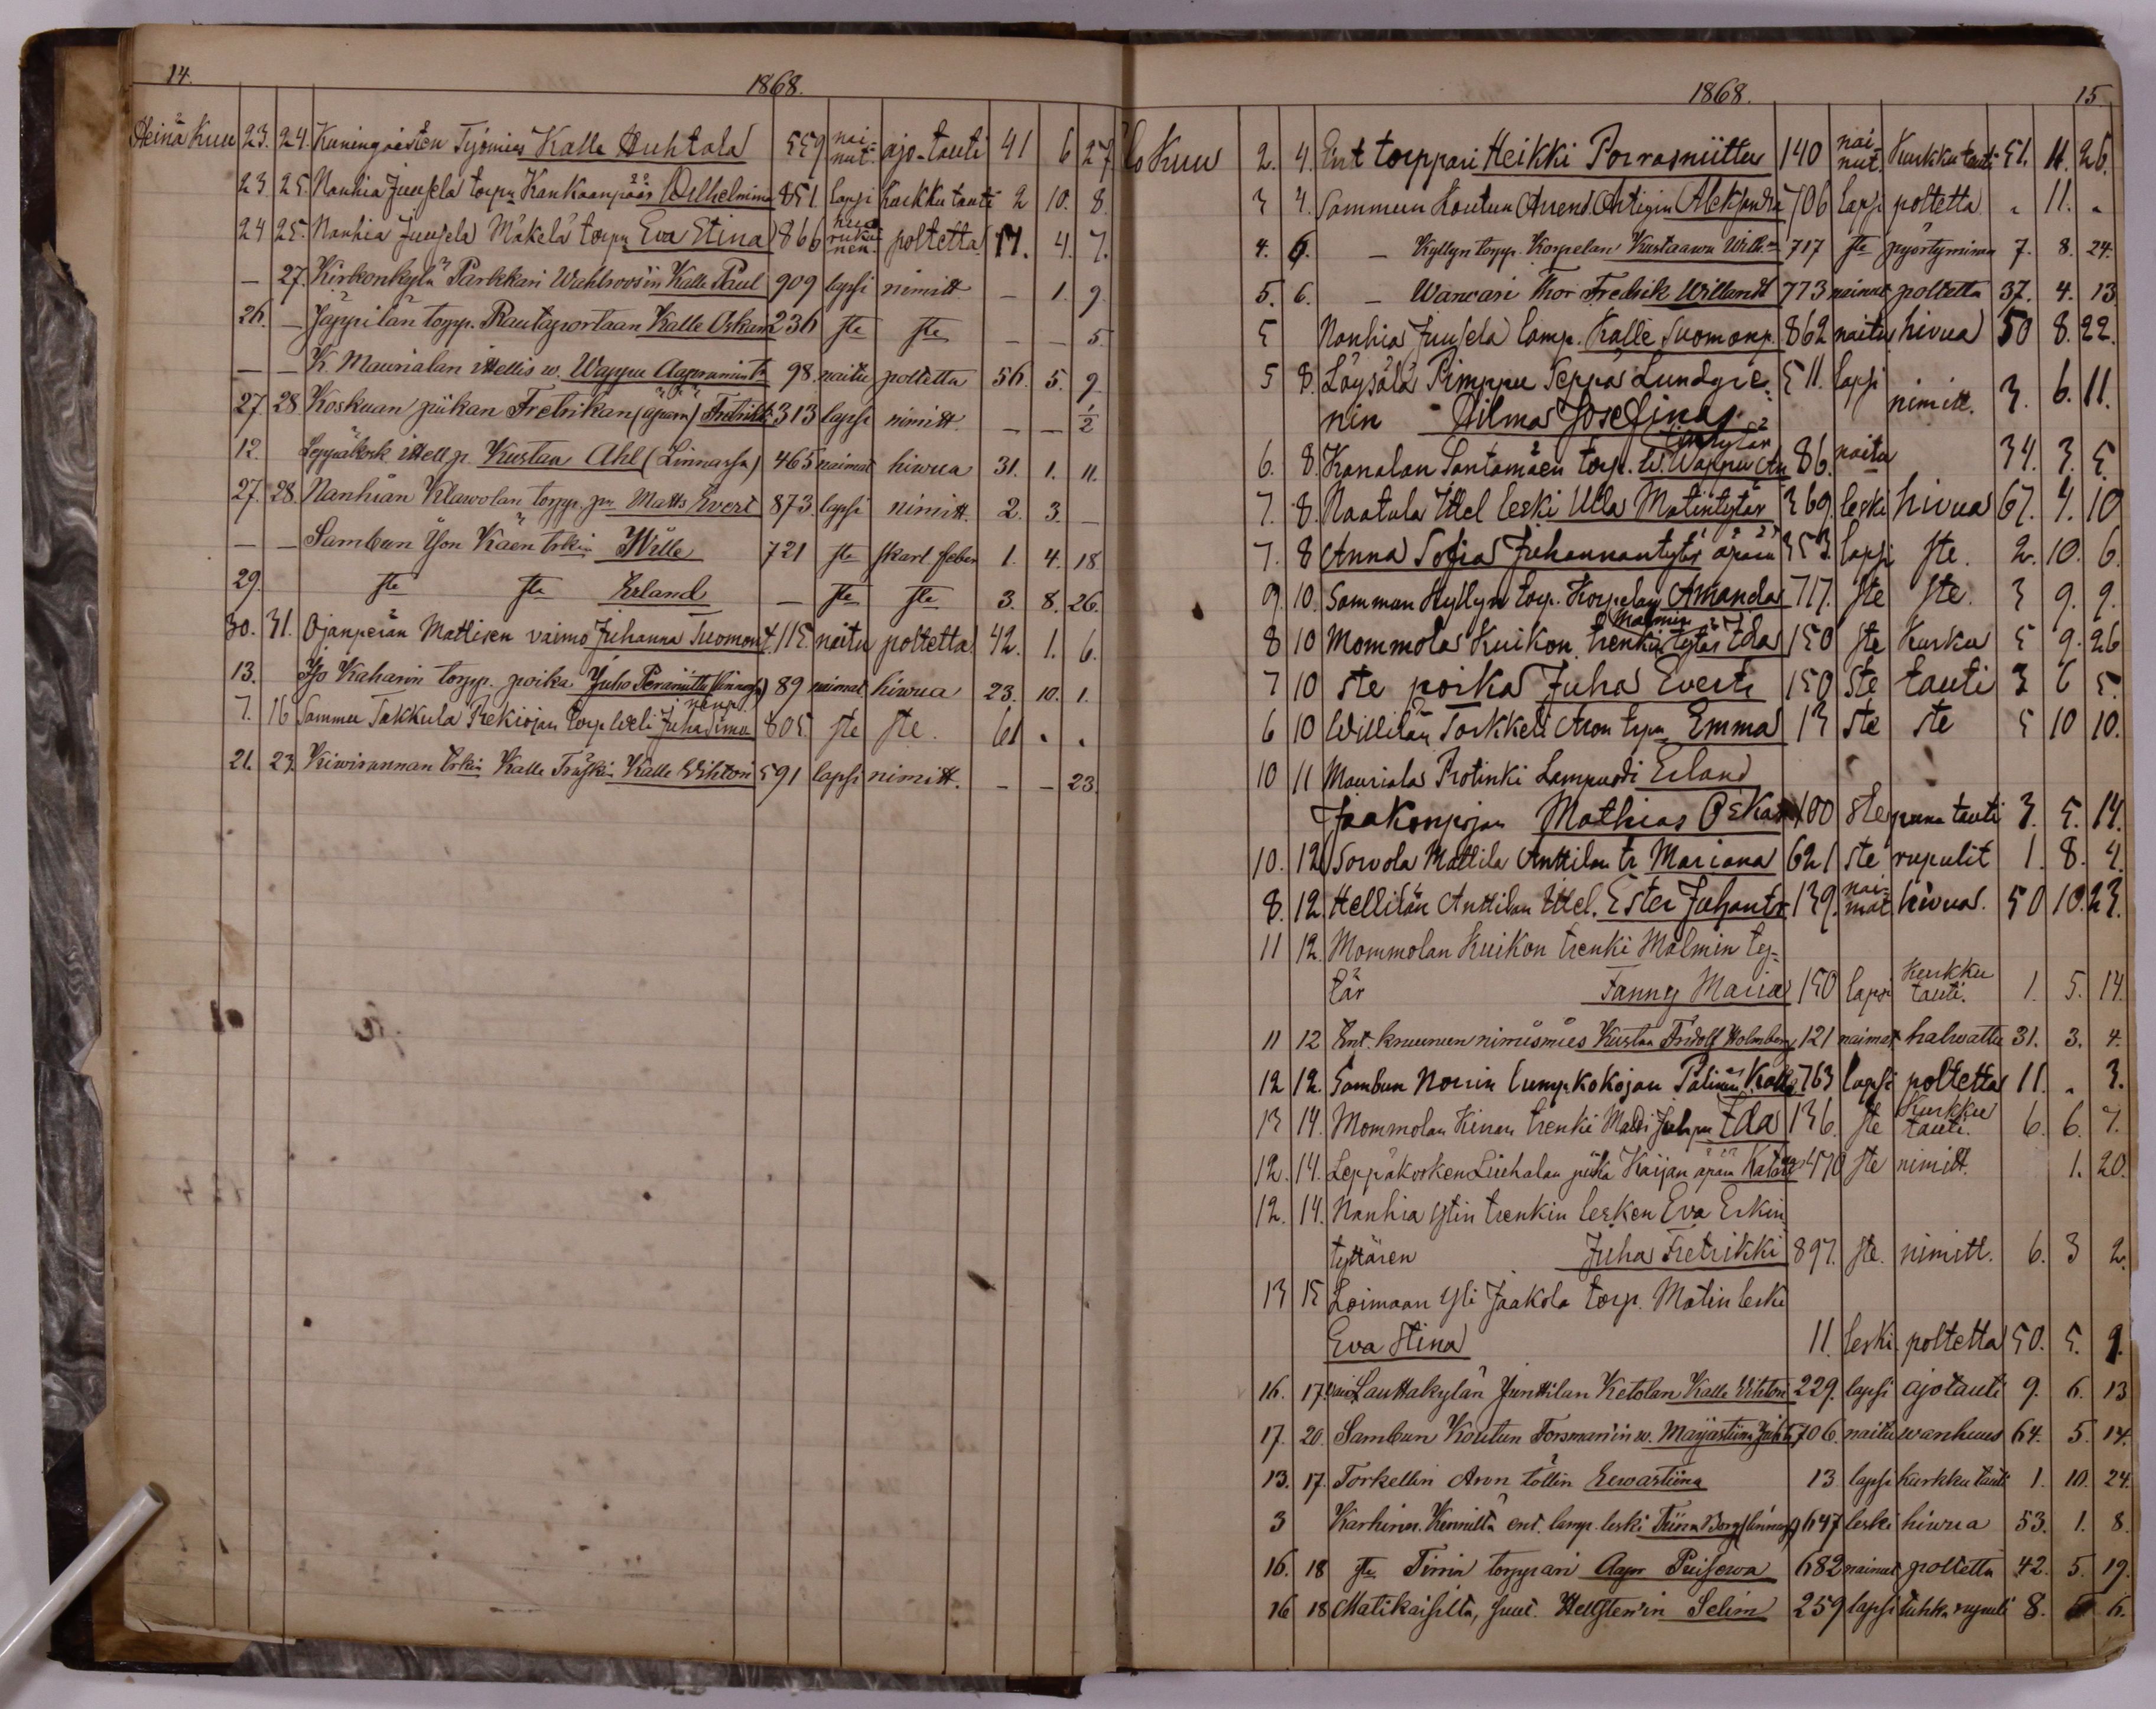 14.
1868.
Heinä Kuu 23. 24. Kuningoisten Työmies Kalle Huhtala 559 nai-nut. ajo-tauti 41 6 27.
23. 25. Nanhia Juusela torpn Kankaanpään Wilhelmina 851. lapsi kurkku tauti 2 10. 8.
24 25. Nanhia Juusela Mäkelä torpn Eva Stina 866 poltetta 17. 4. 7.
— 27. Kirkonkylä Parkkari Wahlroosin Kalle Paul 909 lapsi nimitt. — 1. 9
26. — Jäppilän torpp. Rautaportaan Kalle Oskari 236 ste ste — — 5.
— — K. Maurialan ittellis w. Wappu Aapramintr 98. naitu poltetta 56. 5. 9
27. 28. Koskuan piikan Fretrikan (äpärä) Fretrikki 313 lapsi nimitt. — — ½
12. Leppäkosk. ittell p. Kustaa Ahl (Linnassa) 465 naimat hiwua 31. 1. 11.
27. 28. Nanhian Klawolan torpp. pn Matts Evert 873. lapsi nimitt. 2. 3. —
— — Sambun Yon Käen trkin Wille 721 ste skarl. feber 1. 4. 18
29. ste ste Erland — ste ste 3. 8. 26.
30. 31. Ojanperän Mattisen vaimo Juhanna Tuomont. 115. naitu poltetta 42. 1. 6.
13. Iso Kaharin torpp. poika Juho Peräniittu (linnassa) 89 naimat hiwua 23. 10. 1.
7. 16 Sammu Takkula Rekiojan torp Weli Juha Simo 805. ste ste. 61 . .
21. 23. Kiwirannan trkin Kalle Träskin Kalle Wihtori 591 lapsi nimitt. — — 23.
1868.
15.
lo Kuu 2. 4. Ent torppari Heikki Porrasniittu 140 nai-nut. Kurkku tauti 51. 11. 26.
3 4. Sammun Koutun Arrend Ahtigin Aleksandra 706 lapsi poltetta . 11. .
4. 6. — Kyllyn torpp. Korpelan Kustaawa Wilh. 717 ste pyörtyminen 7. 8. 24.
5. 6. — Wanwari Thor Fredrik Willandt 773 nainut poltetta 37. 4. 13
5 Nanhia Juusela lamp. Kalle Tuomanp. 862 naitu hivua 50 8. 22.
5 8. Löysälä Pimppu Seppäs Lundgre- 511. lapsi
nin Hilma Josefina nimitt. 3. 6. 11.
6. 8. Kanalan Santamäen torp. W. Wappu An 86. naitu 34. 3. 5.
7. 8. Naatula Ittel leski Ulla Matintytär 369. leski hivua 67. 4. 10
7. 8 Anna Sofia Juhannantytär äpärä 353. lapsi ste. 2. 10. 6.
9. 10. Samman Kyllyn torp. Korpelan Amanda 717. ste ste. 3 9. 9.
8 10 Mommola Kuikon trenkin Malmin tytär Eda 150 ste Kurku 5 9. 26
7 10 ste poika Juha Everti 150 ste tauti 3 6 5.
6 10 Willilän Torkkeli Aron trpn Emma 13 ste ste 5 10 10.
10 11 Mauriala Protinki Lampuodi Erland
Jaakonpojan Mathias Oskar 100 ste puna tauti 3. 5. 14.
10. 12 Sovola Mattila Anttilan tr Mariana 621 ste rupulit 1. 8. 4.
8. 12. Hellilän Anttilan Ittel. Ester Juhantr 139. nai-mat hivua. 50 10. 23.
11 12. Mommolan Kuikon trenki Malmin ty-
tär Fanny Maria 150 lapsi Kurkku tauti. 1. 5. 14.
11 12 Ent. kruunun nimismies Kustaa Fridolf Holmberg 121 naimat halwattu 31. 3. 4.
12 12. Sambun Norrin lump. kokojan Palinin Kalle 763 lapsi poltetta 11. . 3.
13 14. Mommolan Kinan trenki Matti Juhpn Eda 136. ste Kurkku tauti. 6. 6. 7.
12. 14. Leppäkosken Liuhalan piika Kaijan äpärä Katari 470 ste nimitt. 1. 20.
12. 14. Nanhia Ystin trenkin lesken Eva Erkin
tyttären Juha Fretrikki 897. ste. nimitt. 6. 3 2.
13 15 Loimaan Yli Jaakola torp. Matin leski
Eva Stina 11. leski poltetta 50. 5. 9.
16. 17. Lauttakylän Junttilan Ketolan Kalle Wihtori 229. lapsi ajotauti 9. 6. 13
17. 20. Sambun Koutun Forsmanin w. Marjastiina Juh.tr 706. naitu wanhuus 64. 5. 14.
13. 17. Torkellin Aron töllin Eewastiina 13 lapsi kurkku tauti 1. 10. 24.
3 Karhinn. Kinnilta ent. lamp. leski Tiina Borg (linnassa) 647 leski hiwua 53. 1. 8.
16. 18 ste Tirrin torppari Aapr Puisewa 682 nainut poltetta 42. 5. 19.
16 18 Matikaisilta, suut. Hellsten'in Selim 259 lapsi tuhka rupuli 8. 6 6.